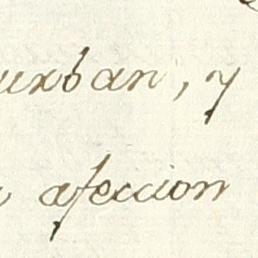 urban, y
afeccion